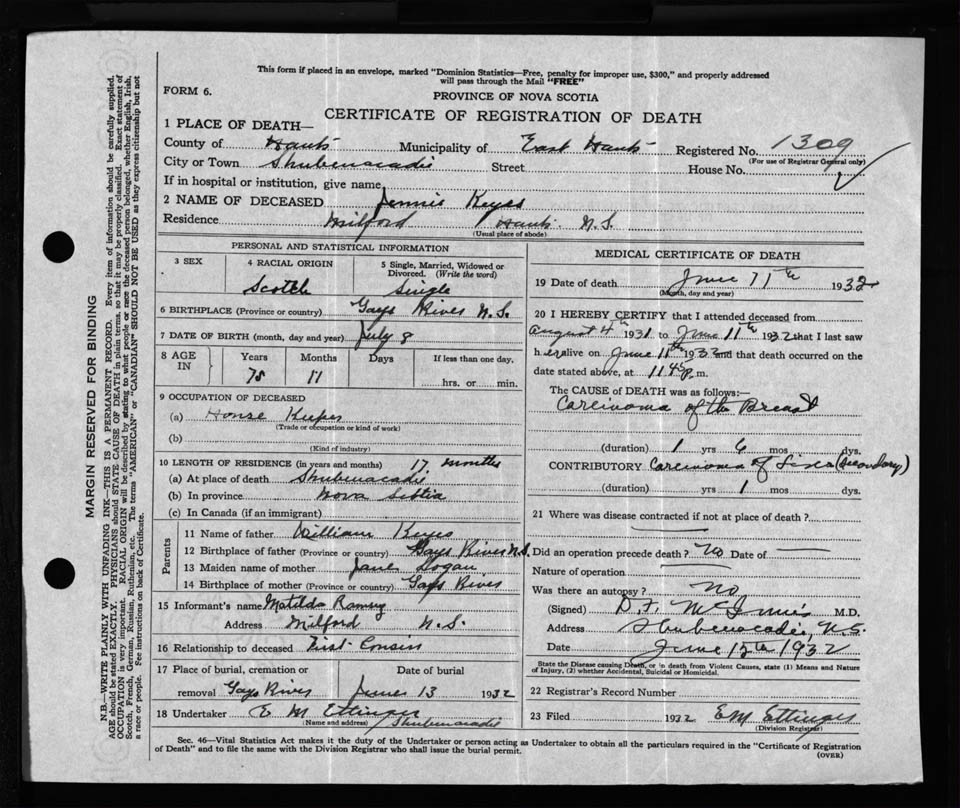 This form if placed in an envelope, marked "Dominion Statistics—Free, penalty for improper use, $300," and properly addressed
will pass through the Mail "FREE"
FORM 6.
PROVINCE OF NOVA SCOTIA
CERTIFICATE OF REGISTRATION OF DEATH
1 PLACE OF DEATH—
County of Hants Municipality of East Hants Registered No. 1309
(For use of Registrar General only)
City or Town Shubenacadie Street House No.
If in hospital or institution, give name
2 NAME OF DECEASED Jennie Keyes
Residence Milford Hants. N.S.
(Usual place of abode)
PERSONAL AND STATISTICAL INFORMATION
3 SEX
4 RACIAL ORIGIN
Scotch
5 Single, Married, Widowed or
Divorced. (Write the word)
Single
6 BIRTHPLACE (Province or country) Gays River N.S.
7 DATE OF BIRTH (month, day and year) July 8
8 AGE IN
Years Months Days If less than one day,
75 11 hrs. or min.
9 OCCUPATION OF DECEASED
(a) House Keeper
(Trade or occupation or kind of work)
(b)
(Kind of industry)
10 LENGTH OF RESIDENCE (in years and months) 17 months
(a) At place of death Shubenacadie
(b) In province Nova Scotia
(c) In Canada (if an immigrant)
Parents
11 Name of father William Keyes
12 Birthplace of father (Province or country) Gays River N.S.
13 Maiden name of mother Jane Logan
14 Birthplace of mother (Province or country) Gays River
15 Informant's name Matilda Ramey
Address Milford N.S.
16 Relationship to deceased First Cousin
17 Place of burial, cremation or
removal Gays River
Date of burial
June 13 1932
18 Undertaker E M Ettinger
(Name and address) Shubenacadie
MEDICAL CERTIFICATE OF DEATH
19 Date of death June 11th 1932
(Month, day and year)
20 I HEREBY CERTIFY that I attended deceased from
August 4th 1931 to June 11th 1932 that I last saw
h er alive on June 11th 1932 and that death occurred on the
date stated above, at 1145 p.m.
The CAUSE of DEATH was as follows:
Carcinoma of the Breast
(duration) 1 yrs 6 mos dys.
CONTRIBUTORY Carcinoma of Liver (Secondary)
(duration) yrs 1 mos dys.
21 Where was disease contracted if not at place of death?
Did an operation precede death? No Date of
Nature of operation
Was there an autopsy? no
(Signed) D. F. McInnis M.D.
Address Shubenacadie, N.S.
Date June 12th 1932
State the Disease causing Death, or in death from Violent Causes, state (1) Means and Nature
of Injury, (2) whether Accidental, Suicidal or Homicidal.
22 Registrar's Record Number
23 Filed 1932 EM Ettinger
(Division Registrar)
Sec. 46—Vital Statistics Act makes it the duty of the Undertaker or person acting as Undertaker to obtain all the particulars required in the "Certificate of Registration
of Death" and to file the same with the Division Registrar who shall issue the burial permit.
(OVER)
MARGIN RESERVED FOR BINDING
N.B.—WRITE PLAINLY WITH UNFADING INK—THIS IS A PERMANENT RECORD. Every item of information should be carefully supplied.
AGE should be stated EXACTLY. PHYSICIANS should STATE CAUSE OF DEATH in plain terms, so that it may be properly classified. Exact statement of
OCCUPATION is very important. RACIAL ORIGIN will be described by stating to what people or race the deceased person belonged, whether English, Irish,
Scotch, French, German, Russian, Ruthenian, etc. The terms "AMERICAN" or "CANADIAN" SHOULD NOT BE USED as they express citizenship but not
a race or people. See instructions on back of Certificate.